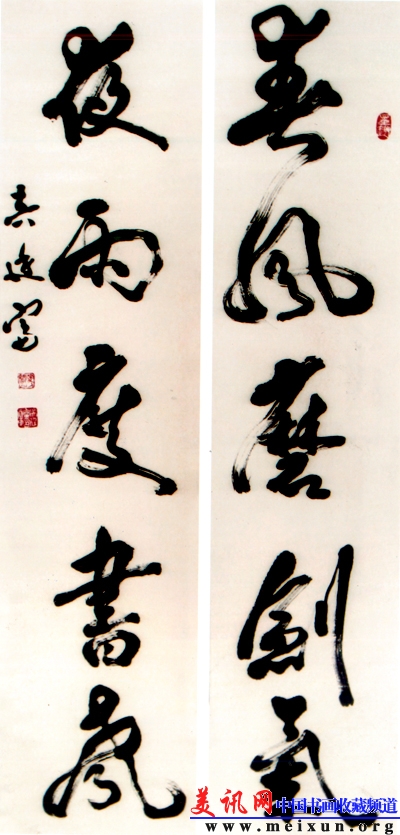 春风磨劍氣
夜雨度書聲
美讯网 中国书画收藏频道
www.meixun.org